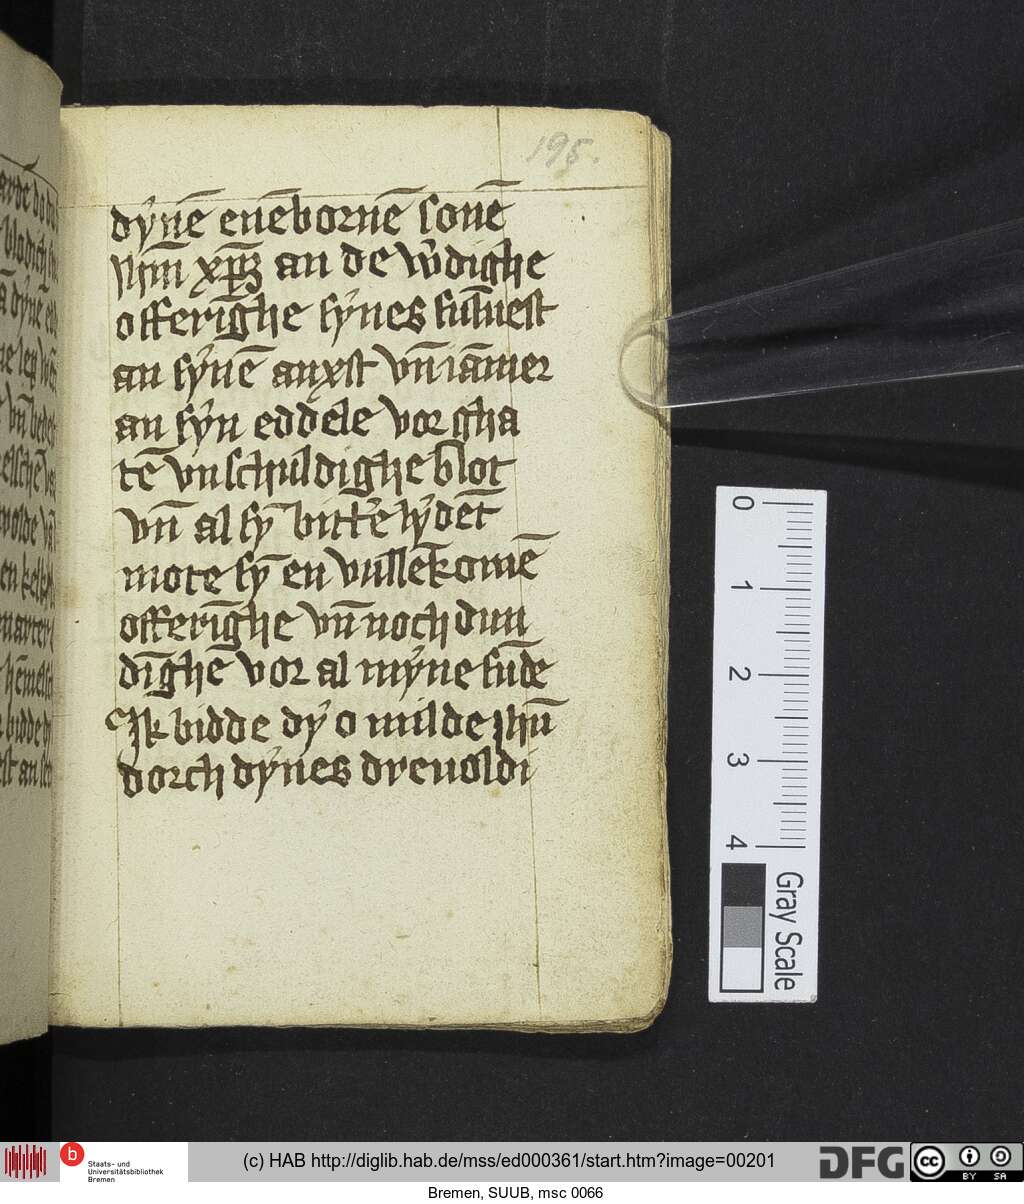 195.
dẏnē enēbornē sonē
ihm̄ xp̄m an de w̉dighe
offerīghe sẏnes sulūest
an sẏnē anxst vn̄ iāmer
an sẏn eddele vorgha
tē vnschuldighe blot
vn̄ al sȳ bitt̉e lẏdēt
mote sȳ en vullēkomē
offerīghe vn̄ noch dun
dīghē vor al mẏne sūde
Ik bidde dẏ o milde ihū
dorch dẏnes dreuoldi
0
1
2
3
4
Gray Scale
b
Staats- und
Universitätsbibliothek
Bremen
(c) HAB http://diglib.hab.de/mss/ed000361/start.htm?image=00201
DFG
cc
BY SA
Bremen, SUUB, msc 0066